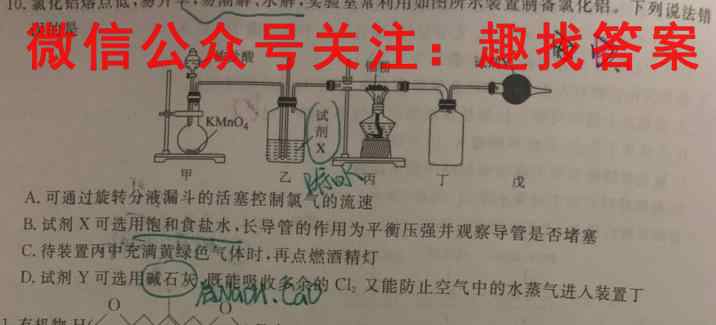 10. 氯化铝熔点低,易升华,易潮解、水解,实验室常利用如图所示装置制备氯化铝。下列说法错
误的是
微信公众号关注:趣找答案
酸
KMnO₄
试剂X
甲 乙 丙 丁 戊
除水
A. 可通过旋转分液漏斗的活塞控制氯气的流速
B. 试剂 X 可选用饱和食盐水,长导管的作用为平衡压强并观察导管是否堵塞
C. 待装置丙中充满黄绿色气体时,再点燃酒精灯
D. 试剂 Y 可选用碱石灰,既能吸收多余的 Cl₂ 又能防止空气中的水蒸气进入装置丁
含NaOH. CaO
有机物 H(
O O